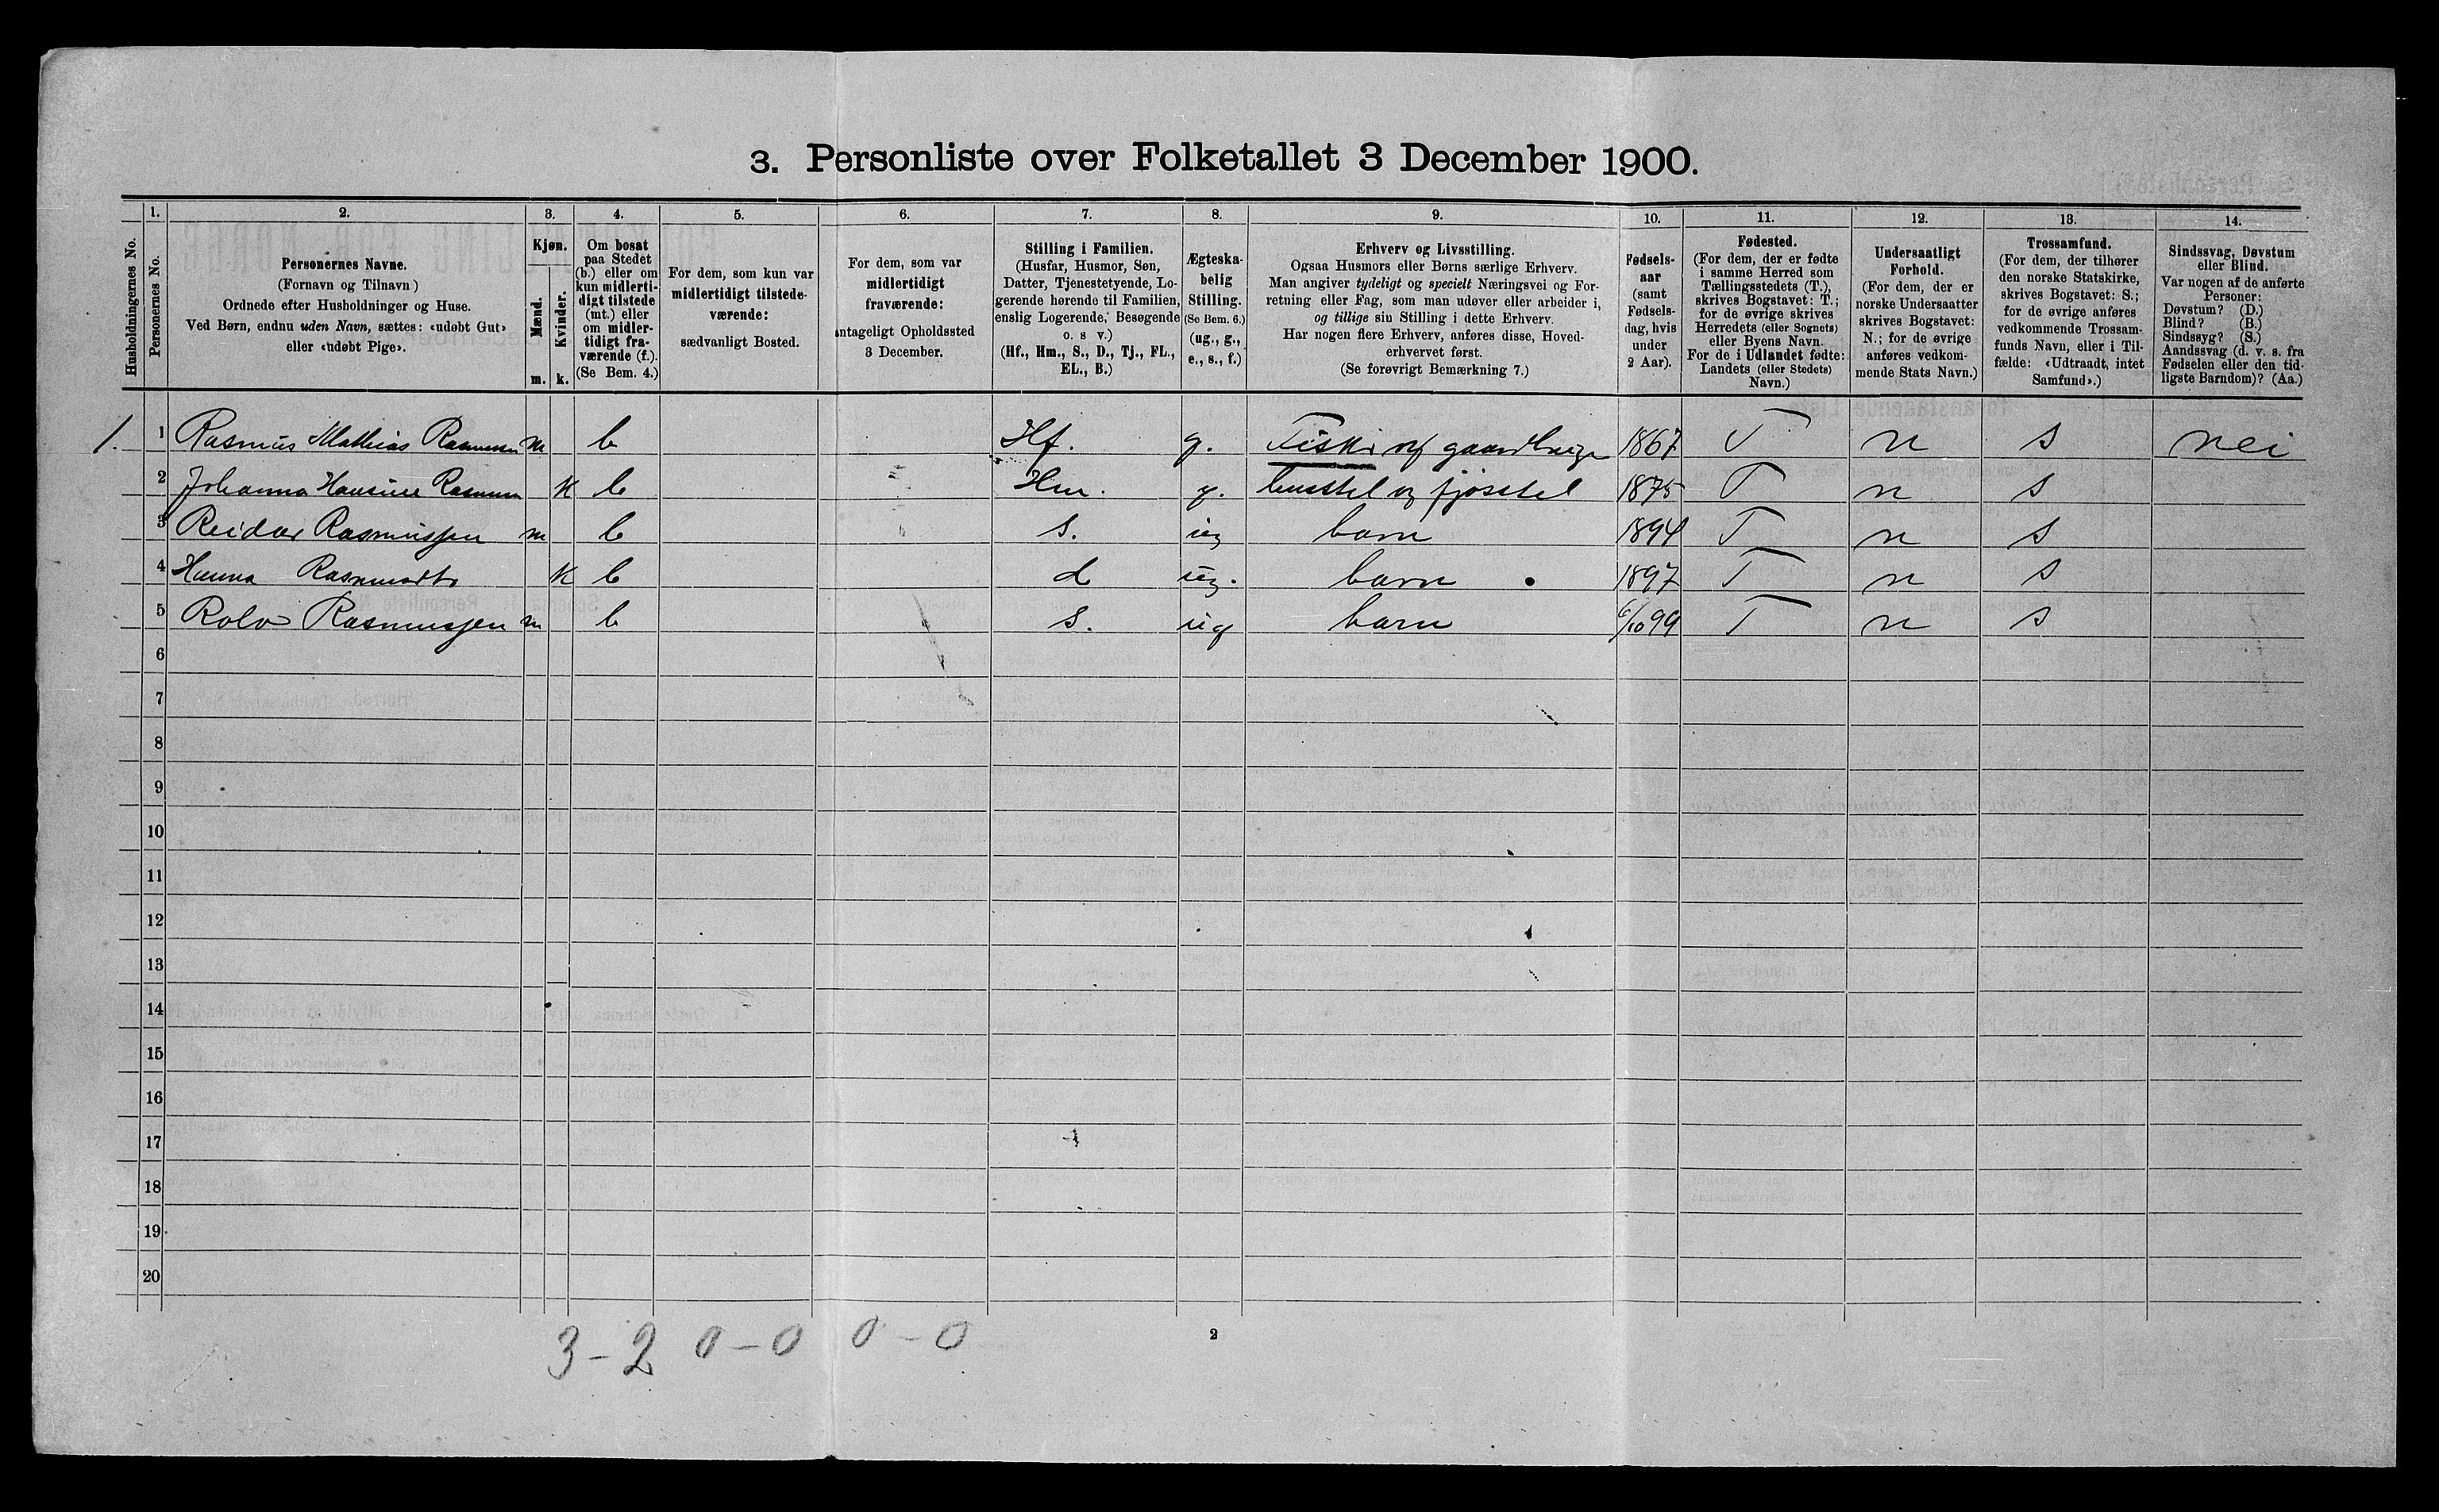 3. Personliste over Folketallet 3 December 1900.
Husholdningernes No.
1.
Personernes No.
2.
Personernes Navne.
(Fornavn og Tilnavn)
Ordnede efter Husholdninger og Huse.
Ved Børn, endnu uden Navn, sættes: «udøbt Gut»
eller «udøbt Pige».
3.
Kjøn.
Mænd.
Kvinder.
m. k.
4.
Om bosat
paa Stedet
(b.) eller om
kun midlerti-
digt tilstede
(mt.) eller
om midler-
tidigt fra-
værende (f.).
(Se Bem. 4.)
5.
For dem, som kun var
midlertidigt tilstede-
værende:
sædvanligt Bosted.
6.
For dem, som var
midlertidigt
fraværende:
antageligt Opholdssted
3 December.
7.
Stilling i Familien.
(Husfar, Husmor, Søn,
Datter, Tjenestetyende, Lo-
gerende hørende til Familien,
enslig Logerende, Besøgende
o. s v.)
(Hf., Hm., S., D., Tj., FL.,
EL., B.)
8.
Ægteska-
belig
Stilling.
(Se Bem. 6.)
(ug., g.,
e., s., f.)
9.
Erhverv og Livsstilling.
Ogsaa Husmors eller Børns særlige Erhverv.
Man angiver tydeligt og specielt Næringsvei og For-
retning eller Fag, som man udøver eller arbeider i,
og tillige sin Stilling i dette Erhverv.
Har nogen flere Erhverv, anføres disse, Hoved-
erhvervet først.
(Se forøvrigt Bemærkning 7.)
10.
Fødsels-
aar
(samt
Fødsels-
dag, hvis
under
2 Aar).
11.
Fødested.
(For dem, der er fødte
i samme Herred som
Tællingsstedets (T.),
skrives Bogstavet: T.;
for de øvrige skrives
Herredets (eller Sognets)
eller Byens Navn.
For de i Udlandet fødte:
Landets (eller Stedets)
Navn.)
12.
Undersaatligt
Forhold.
(For dem, der er
norske Undersaatter
skrives Bogstavet:
N.; for de øvrige
anføres vedkom-
mende Stats Navn.)
13.
Trossamfund.
(For dem, der tilhører
den norske Statskirke,
skrives Bogstavet: S.;
for de øvrige anføres
vedkommende Trossam-
funds Navn, eller i Til-
fælde: «Udtraadt, intet
Samfund».)
14.
Sindssvag, Døvstum
eller Blind.
Var nogen af de anførte
Personer:
Døvstum? (D.)
Blind? (B.)
Sindssyg? (S.)
Aandssvag (d. v. s. fra
Fødselen eller den tid-
ligste Barndom)? (Aa.)
1. 1 Rasmus Mathias Rasmussen m b Hf. g. Fisker og gaardbruger 1867 T n s nei
2 Johanna Hansine Rasmussen K b Hm. g. husstel og fjøsstel 1875 T n s
3 Reidar Rasmussen m b S. ug barn 1894 T n s
4 Hanna Rasmusdtr K b d ug. barn 1897 T n s
5 Rolv Rasmussen m b S. ug barn 6/10 99 T n s
6
7
8
9
10
11
12
13
14
15
16
17
18
19
20
3-2 0-0 0-0
2